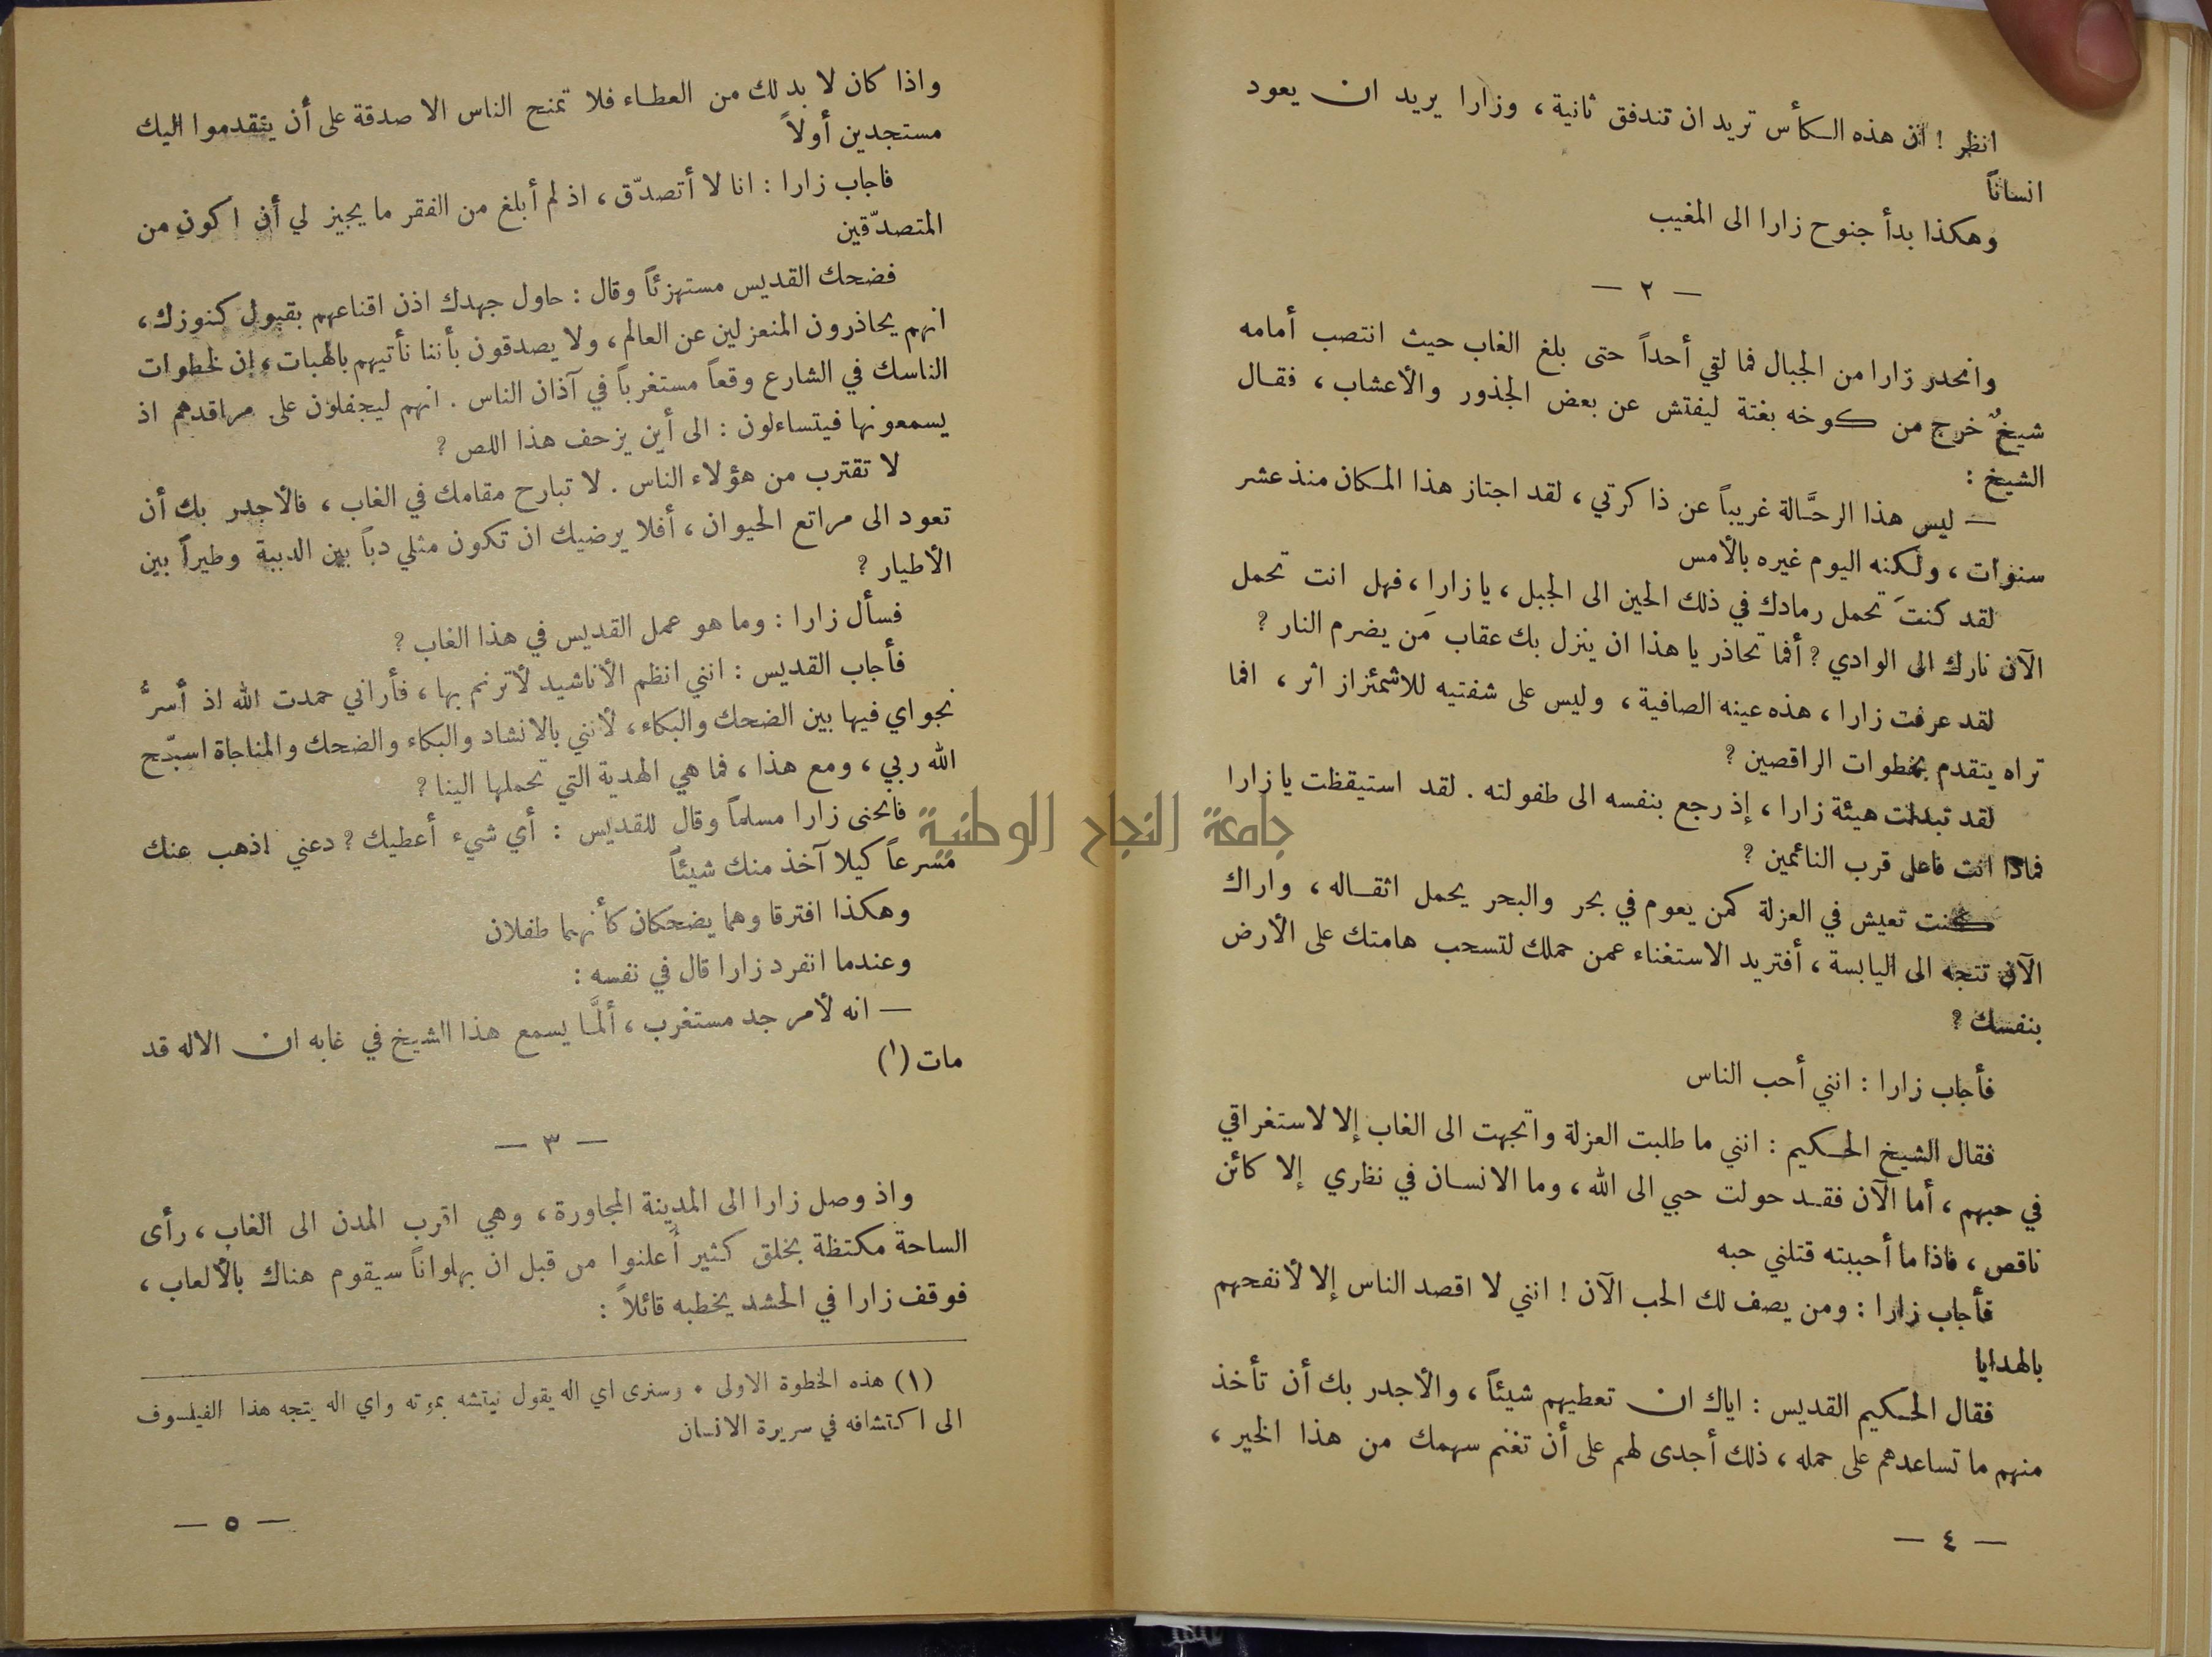 انظر ! ان هذه الكأس تريد ان تندفق ثانية ، وزارا يريد ان يعود
انساناً
وهكذا بدأ جنوح زارا الى المغيب
— ٢ —
وانحدر زارا من الجبال فما لقي أحداً حتى بلغ الغاب حيث انتصب أمامه
شيخٌ خرج من كوخه بغتة ليفتش عن بعض الجذور والأعشاب ، فقال
الشيخ :
— ليس هذا الرحَّالة غريباً عن ذاكرتي ، لقد اجتاز هذا المكان منذ عشر
سنوات ، ولكنه اليوم غيره بالأمس
لقد كنتَ تحمل رمادك في ذلك الحين الى الجبل ، يا زارا ، فهل انت تحمل
الآن نارك الى الوادي ? أفما تحاذر يا هذا ان ينزل بك عقاب مَن يضرم النار ?
لقد عرفت زارا ، هذه عينه الصافية ، وليس على شفتيه للاشمئزاز اثر ، افما
تراه يتقدم بخطوات الراقصين ?
لقد تبدلت هيئة زارا ، إذ رجع بنفسه الى طفولته . لقد استيقظت يا زارا
فماذا انت فاعل قرب النائمين ?
كنت تعيش في العزلة كمن يعوم في بحر والبحر يحمل اثقاله ، واراك
الآن تتجه الى اليابسة ، أفتريد الاستغناء عمن حملك لتسحب هامتك على الأرض
بنفسك ?
فأجاب زارا : انني أحب الناس
فقال الشيخ الحكيم : انني ما طلبت العزلة واتجهت الى الغاب إلا لاستغراقي
في حبهم ، أما الآن فقد حولت حبي الى الله ، وما الانسان في نظري إلا كائن
ناقص ، فاذا ما أحببته قتلني حبه
فأجاب زارا : ومن يصف لك الحب الآن ! انني لا اقصد الناس إلا لأنفحهم
بالهدايا
فقال الحكيم القديس : اياك ان تعطيهم شيئاً ، والأجدر بك أن تأخذ
منهم ما تساعدهم على حمله ، ذلك أجدى لهم على أن تغنم سهمك من هذا الخير ،
— ٤ —
واذا كان لا بد لك من العطاء فلا تمنح الناس الا صدقة على أن يتقدموا اليك
مستجدين أولاً
فاجاب زارا : انا لا أتصدّق ، اذ لم أبلغ من الفقر ما يجيز لي أن اكون من
المتصدّقين
فضحك القديس مستهزئاً وقال : حاول جهدك اذن اقناعهم بقبول كنوزك ،
انهم يحاذرون المنعزلين عن العالم ، ولا يصدقون بأننا نأتيهم بالهبات ، إن لخطوات
الناسك في الشارع وقعاً مستغرباً في آذان الناس . انهم ليجفلون على مراقدهم اذ
يسمعونها فيتساءلون : الى أين يزحف هذا اللص ?
لا تقترب من هؤلاء الناس . لا تبارح مقامك في الغاب ، فالأجدر بك أن
تعود الى مراتع الحيوان ، أفلا يرضيك ان تكون مثلي دباً بين الدببة وطيراً بين
الأطيار ?
فسأل زارا : وما هو عمل القديس في هذا الغاب ?
فأجاب القديس : انني انظم الأناشيد لأترنم بها ، فأراني حمدت الله اذ أسرُّ
نجواي فيها بين الضحك والبكاء ، لأنني بالانشاد والبكاء والضحك والمناجاة اسبّح
الله ربي ، ومع هذا ، فما هي الهدية التي تحملها الينا ?
فانحنى زارا مسلماً وقال للقديس : أي شيء أعطيك ? دعني اذهب عنك
مسرعاً كيلا آخذ منك شيئاً
وهكذا افترقا وهما يضحكان كأنهما طفلان
وعندما انفرد زارا قال في نفسه :
— انه لأمر جد مستغرب ، ألمَّا يسمع هذا الشيخ في غابه ان الاله قد
مات (١)
— ٣ —
واذ وصل زارا الى المدينة المجاورة ، وهي اقرب المدن الى الغاب ، رأى
الساحة مكتظة بخلق كثير أُعلنوا من قبل ان بهلواناً سيقوم هناك بالألعاب ،
فوقف زارا في الحشد يخطبه قائلاً :
(١) هذه الخطوة الاولى . وسنرى اي اله يقول نيتشه بموته واي اله يتجه هذا الفيلسوف
الى اكتشافه في سريرة الانسان
— ٥ —
جامعة النجاح الوطنية